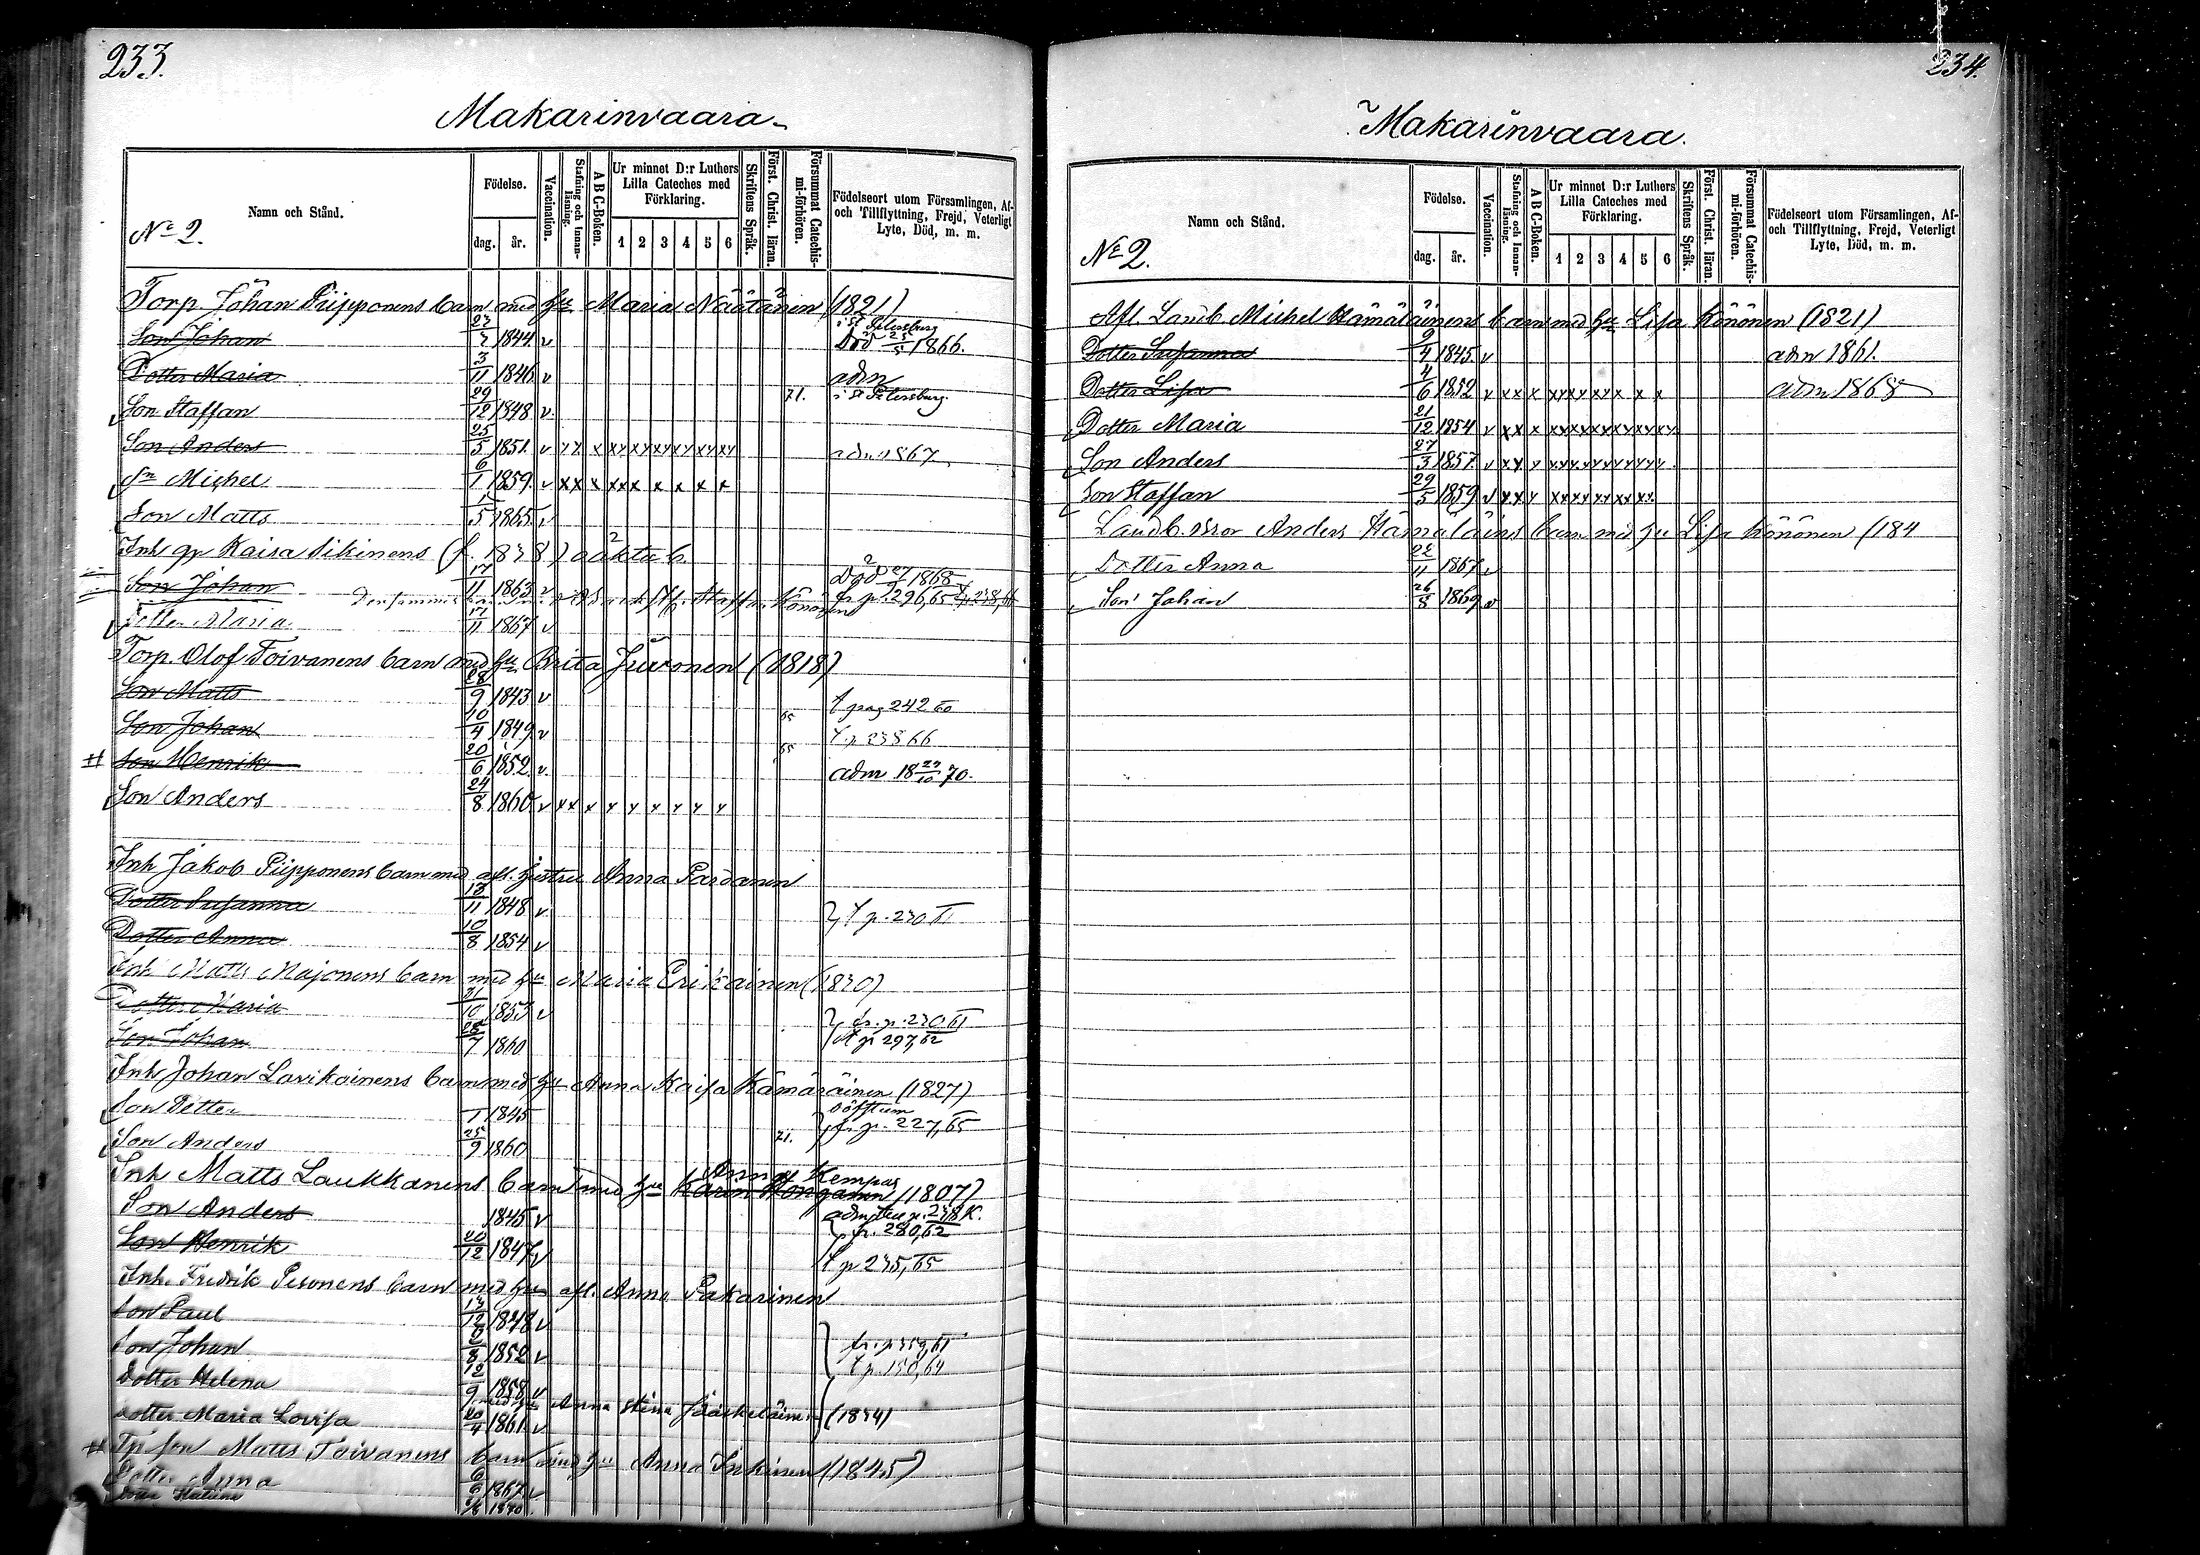 233.
Makarinvaara
Namn och Stånd.
No 2.
Födelse.
dag.
år.
Vaccination.
Stafning och Innan-läsning.
A B C-Boken.
Ur minnet D:r Luthers Lilla Cateches med Förklaring.
1 2 3 4 5 6
Skriftens Språk.
Först. Christ. läran.
Försummat Catechis-mi-förhören.
Födelseort utom Församlingen, Af- och Tillflyttning, Frejd, Veterligt Lyte, Död, m. m.
Torp. Johan Piipponens barn med hu Maria Näätänen (1821)
Son Johan 1844 v i St Petersburg Död 25/5 1866.
Dotter Maria 3/11 1846 v adm
Son Staffan 29/12 1848 v 71. i St Petersburg.
Son Anders 25/5 1851 v adm 1867
Sn Michel 6/1 1859 v
Son Matts 1865 v
Inh qp Kaisa (f. 1838) oäkta b.
Son Johan 17/11 1863 v Död 27/2 1868
Dotter Maria 17/11 1867 v
Torp. Olof Toivanens barn med hu Brita Juvonen (1818)
Son Matts 28/9 1843 v t pag 242 60
Son Johan 10/4 1849 v 65 t. p 238 66
# Son Henrik 20/6 1852 v 65 adm 18 70.
Son Anders 24/8 1860 v
Inh Jakob Piipponens barn med afl. hustru Anna Pardanen
Dotter Susanna 13/11 1848 v } t p. 230 61
Dotter Anna 10/8 1854 v
Inh Matts Majonens barn med hu Maria Erikainen (1830)
Dotter Maria 31/10 1853 v } fr. p. 230 61
Son Johan 28/7 1860 t p 297, 62
Inh Johan Lavikainens barn med hu Anna Kaisa Kämäräinen (1827)
Son Petter 1 1845 döfstum
Son Anders 25/9 1860 71. } fr. p. 227, 65
Inh Matts Laukkanens barn med hu Karin Anna Kempas (1807)
Son Anders 1845 v fr. 280, 62
Son Henrik 20/12 1847 v t p 235, 65
Inh. Fredrik Pesonens barn med hu afl. Anna Pakarinen
Son Paul 13/12 1848 v
Son Johan 8 1852 v fr. p 359, 61
Dotter Helena 12/9 1858 v t p. 150, 64
med hu Anna Stina Jääskeläinen (1834)
Dotter Maria Lovisa 20/4 1861 v
# Tp son Matts Toivanens barn med hu Anna Inkinen (1845)
Dotter Anna 6/6 1867 v
Dotter 1870
234.
Makarinvaara.
Namn och Stånd.
No 2.
Födelse.
dag.
år.
Vaccination.
Stafning och Innan-läsning.
A B C-Boken.
Ur minnet D:r Luthers Lilla Cateches med Förklaring.
1 2 3 4 5 6
Skriftens Språk.
Först. Christ. läran.
Försummat Catechis-mi-förhören.
Födelseort utom Församlingen, Af- och Tillflyttning, Frejd, Veterligt Lyte, Död, m. m.
Afl. Landb. Michel Hämäläinens barn med hu Lisa Könönen (1821)
Dotter Susanna 9/4 1845 v adm 1861.
Dotter Lisa 4/6 1852 v adm 1868
Dotter Maria 21/12 1854 v
Son Anders 27/3 1857 v
Son Staffan 29/5 1859 v
Landb. bror Anders Hämäläins barn med hu Lisa Könönen (184
Dotter Anna 22/11 1867 v
Son Johan 26/8 1869 v